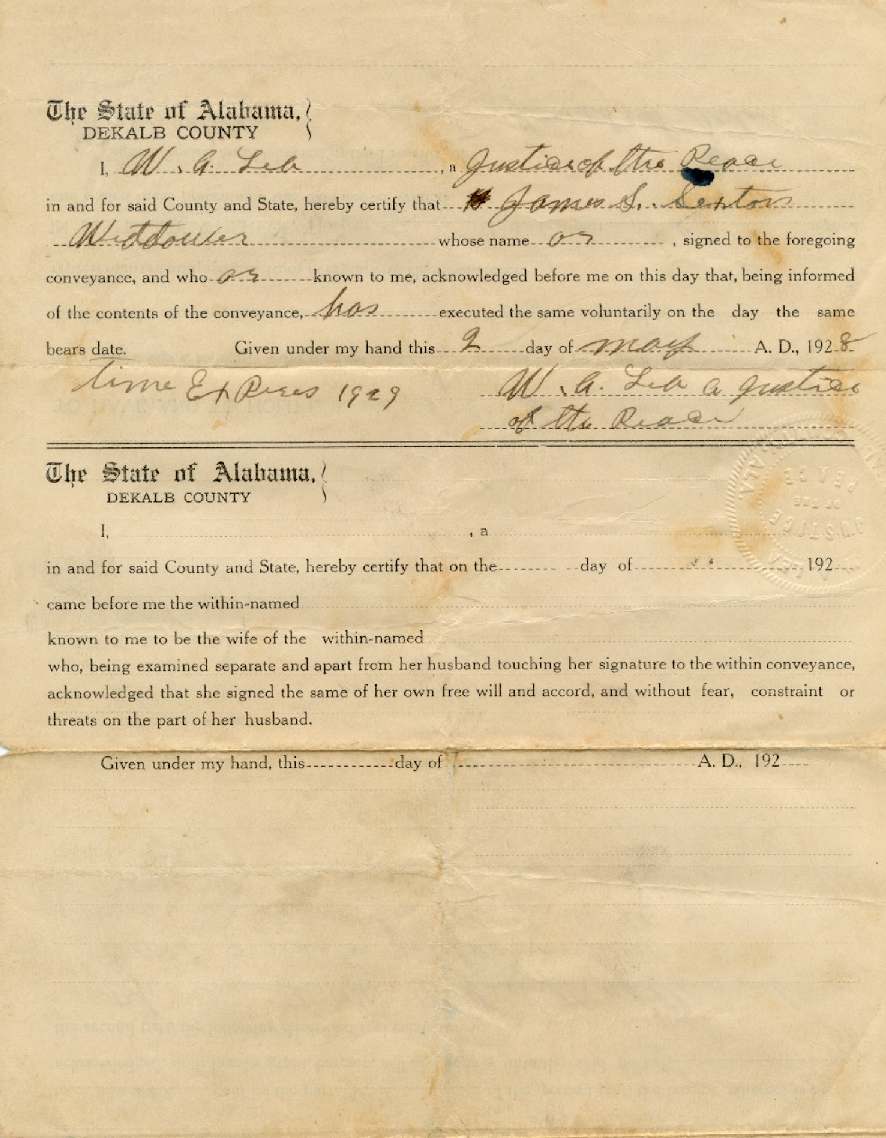 The State of Alabama,
DEKALB COUNTY
I, W. G. , a Justice of the Peace
in and for said County and State, hereby certify that James S. Sexton
Widdower whose name as , signed to the foregoing
conveyance, and who as known to me, acknowledged before me on this day that, being informed
of the contents of the conveyance, has executed the same voluntarily on the day the same
bears date. Given under my hand this 2 day of may A. D., 1928
time ExPires 1929 W. G. a Justice
of the Peace
The State of Alabama,
DEKALB COUNTY
I, , a
in and for said County and State, hereby certify that on the day of 192
came before me the within-named
known to me to be the wife of the within-named
who, being examined separate and apart from her husband touching her signature to the within conveyance,
acknowledged that she signed the same of her own free will and accord, and without fear, constraint or
threats on the part of her husband.
Given under my hand, this day of A. D., 192